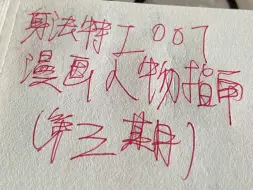 身法特工007
漫画人物指南
(第三期)